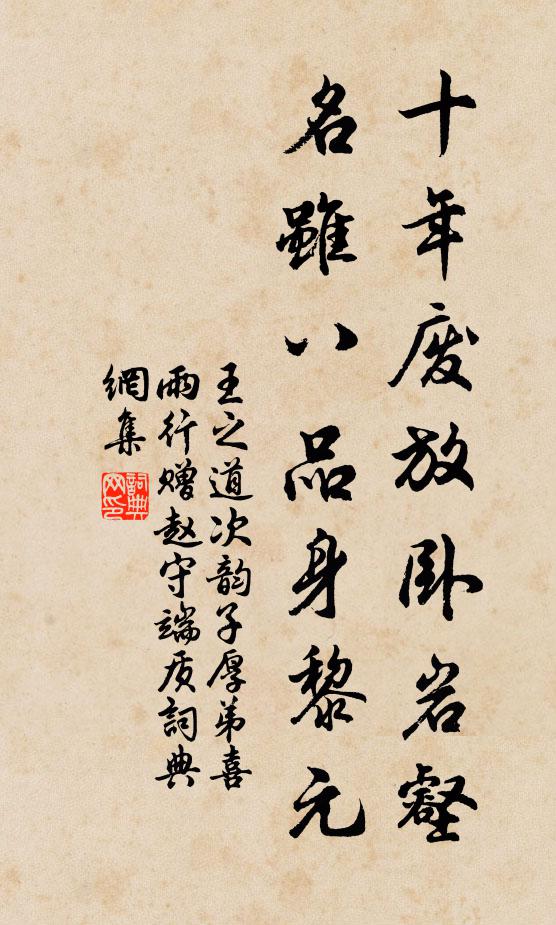 十年废放卧岩壑
名虽八品身黎元
王之道次韵子厚弟喜
雨行赠赵守端质词典
網集
詞典
网印